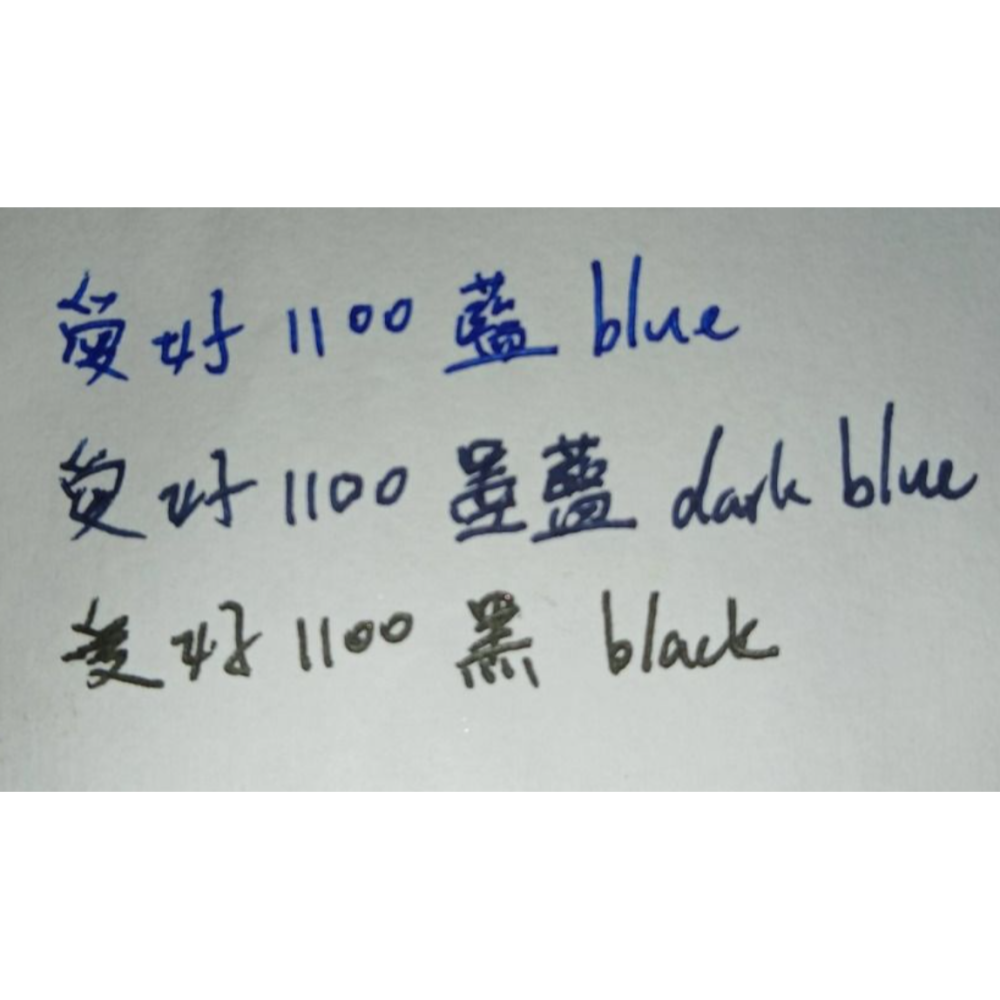 愛好 1100 藍 blue
愛好 1100 墨藍 dark blue
愛好 1100 黑 black